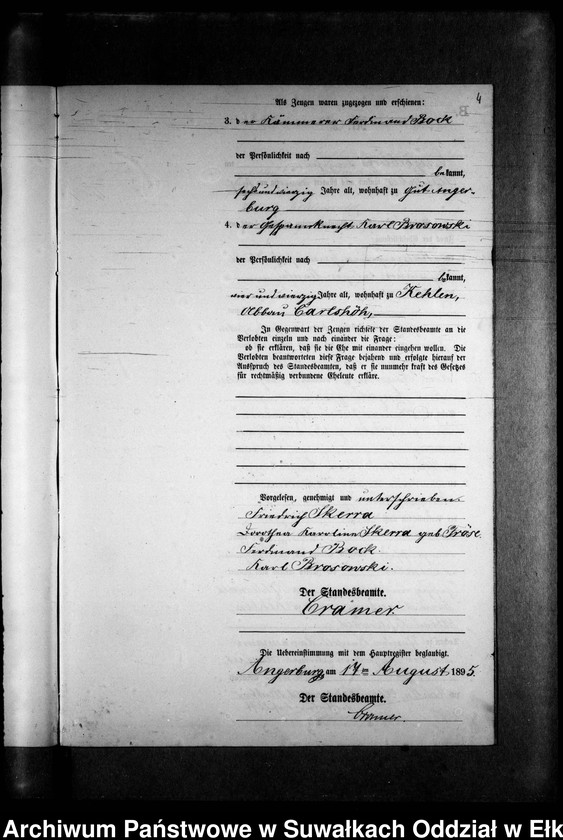 4
Als Zeugen waren zugezogen und erschienen:
3. der Kämmerer Ferdinand Bock
der Persönlichkeit nach
bekannt,
sechsundvierzig Jahre alt, wohnhaft zu Gut Anger-
burg
4. der Gespannknecht Karl Brosowski
der Persönlichkeit nach
bekannt,
vierundvierzig Jahre alt, wohnhaft zu Kehlen,
Abbau Carlshöh,
In Gegenwart der Zeugen richtete der Standesbeamte an die
Verlobten einzeln und nach einander die Frage:
ob sie erklären, daß sie die Ehe mit einander eingehen wollen. Die
Verlobten beantworteten diese Frage bejahend und erfolgte hierauf der
Ausspruch des Standesbeamten, daß er sie nunmehr kraft des Gesetzes
für rechtmäßig verbundene Eheleute erkläre.
Vorgelesen, genehmigt und unterschrieben
Friedrich Skerra
Dorothea Karoline Skerra geb Gröse
Ferdinand Bock.
Karl Brosowski.
Der Standesbeamte.
Cramer.
Die Uebereinstimmung mit dem Hauptregister beglaubigt.
Angerburg, am 17ten August 1895.
Der Standesbeamte.
Cramer.
Archiwum Państwowe w Suwałkach Oddział w Ełk